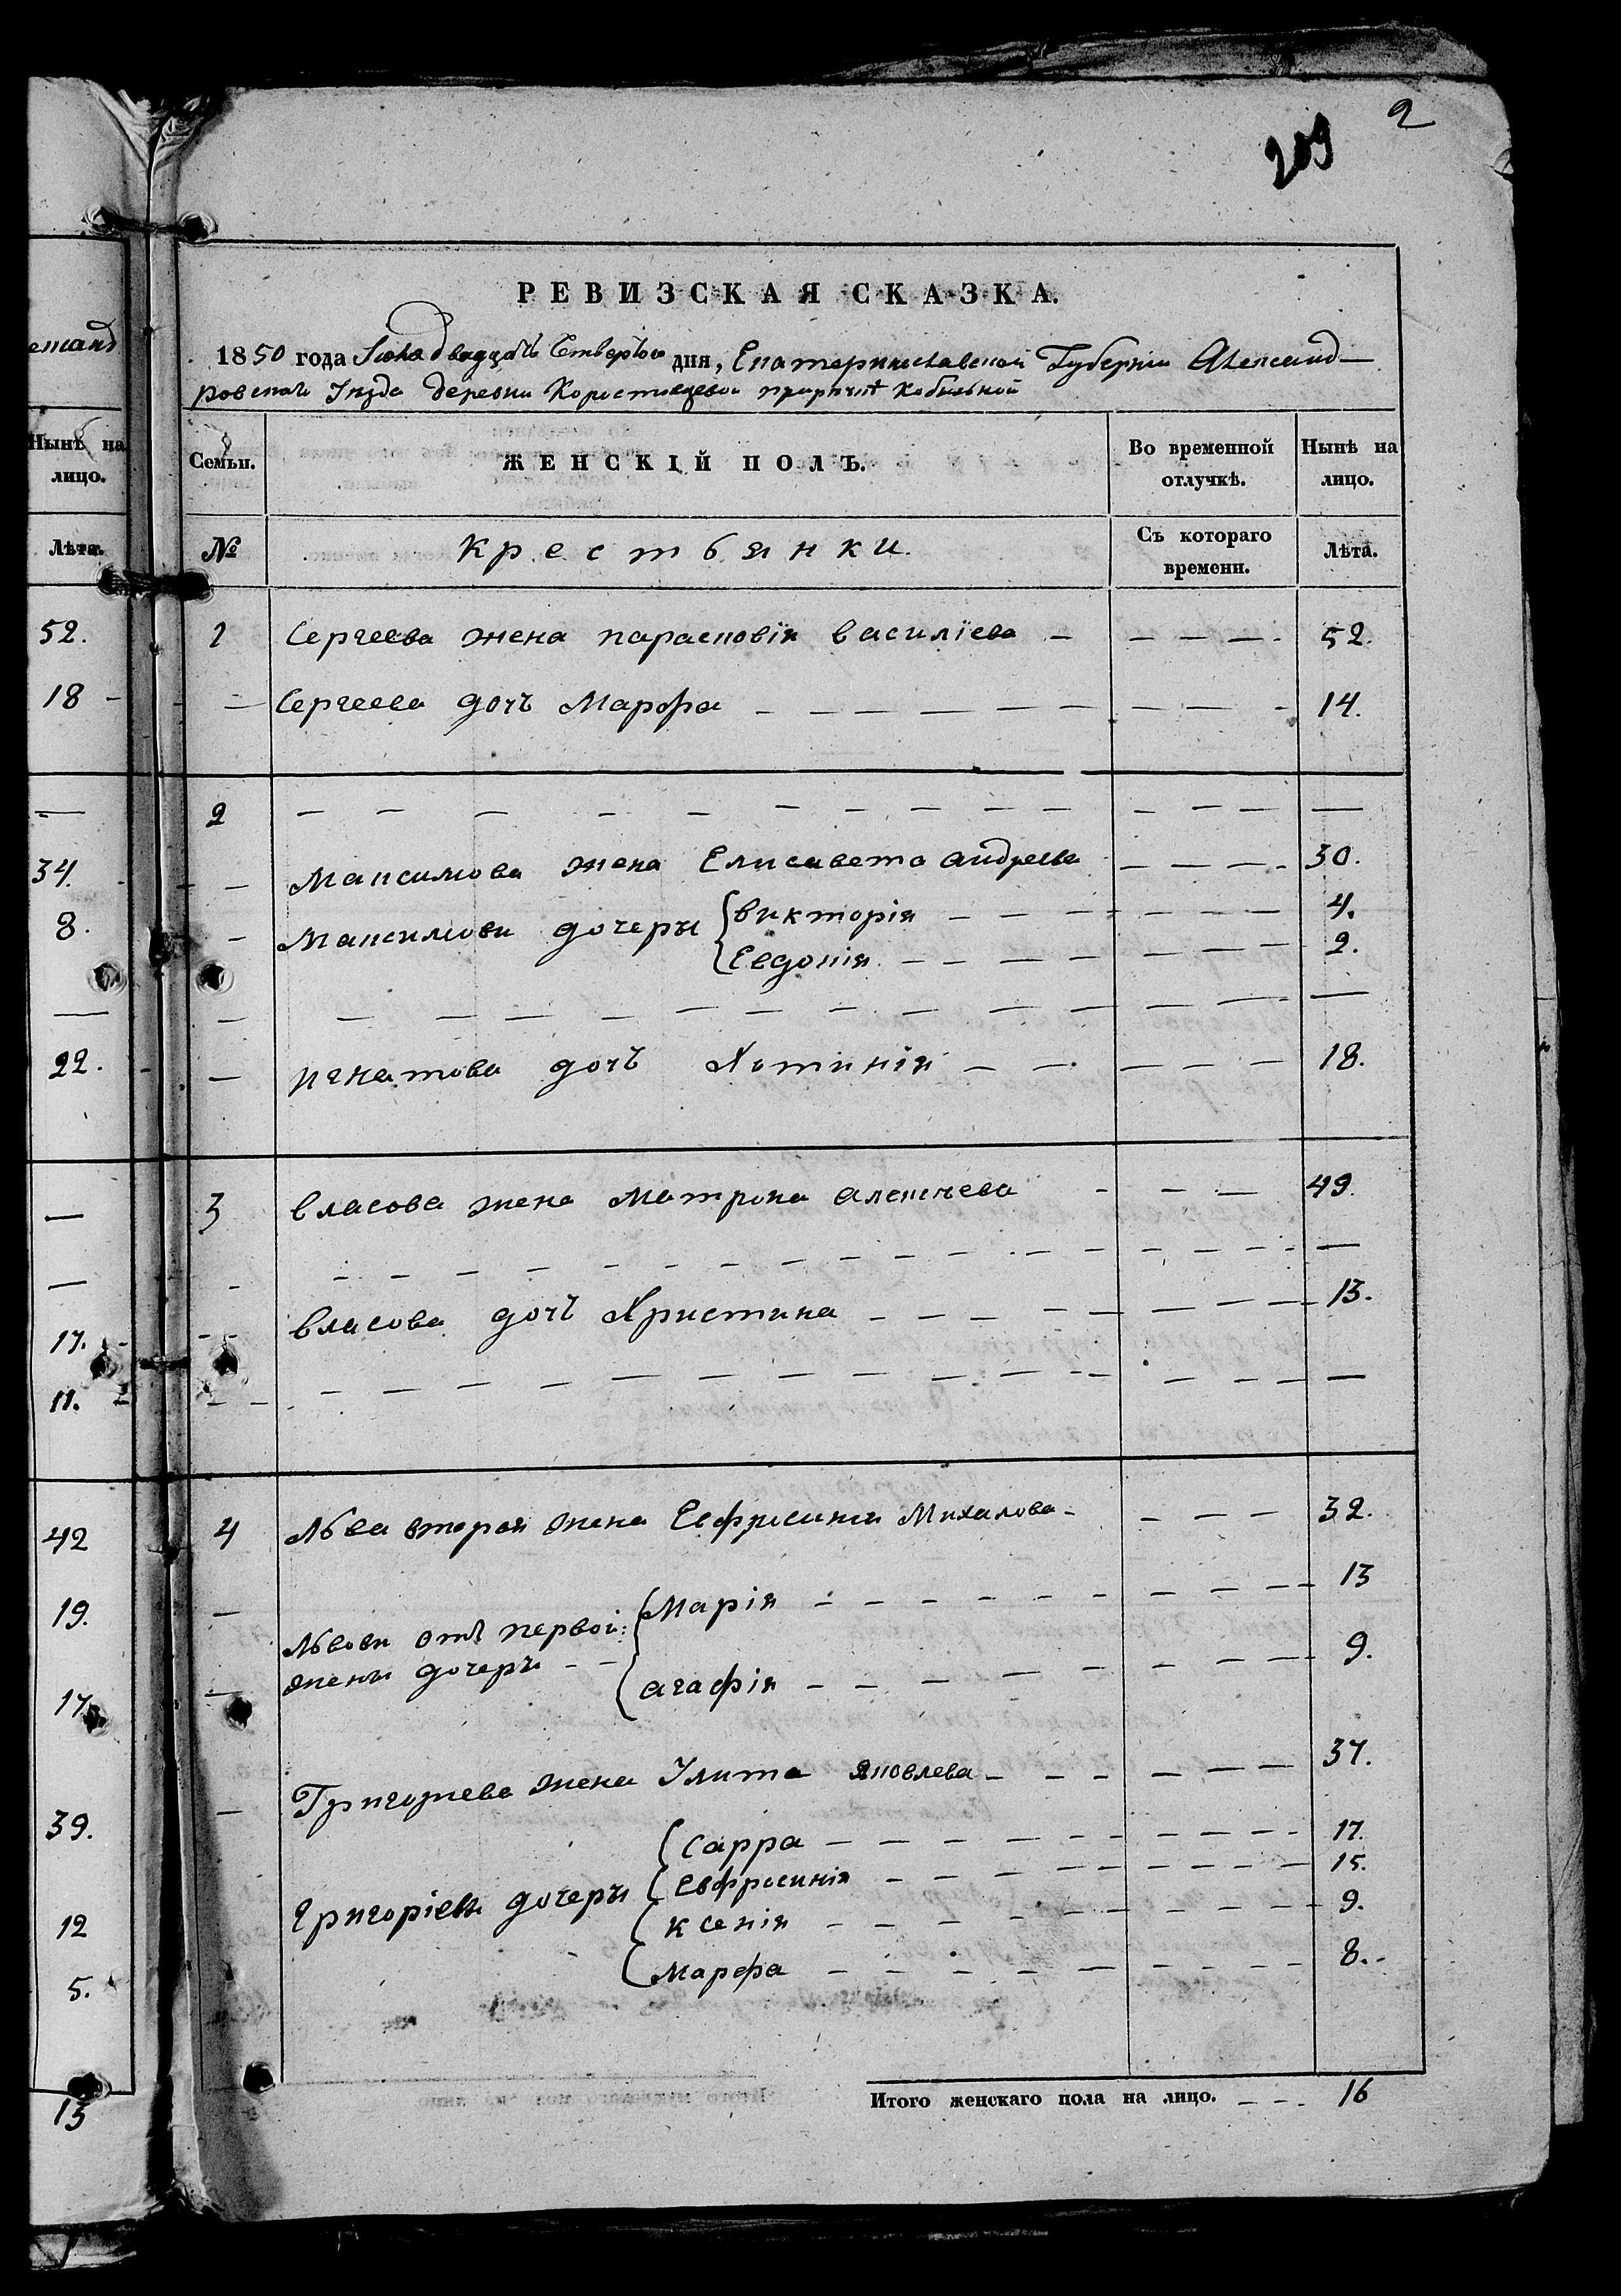 2
209
РЕВИЗСКАЯ СКАЗКА.
1850 года Іюня двадцать Четвертого дня, Екатеринославской Губерніи Александ-
ровскаго Уезда деревни Коростовцевой при речке Кобыльной
Семьи.
ЖЕНСКІЙ ПОЛЪ.
Во временной отлучкѣ.
Нынѣ на лицо.
№
Крестьянки.
Съ котораго времени.
Лѣта.
1 Сергеева жена парасковія василіева — — — — 52.
— Сергеева дочь Марфа — — — — 14.
2 — — — — — —
— Максимова жена Елисавета андреева — — — — 30.
— Максимовы дочеры викторія — — — — 4.
Евдокія — — — — 2.
— — — — — —
— игнатова дочь Хотинія — — — — 18.
3 власова жена Матрона алексеева — — — 49.
— — — — — —
— власова дочь Христина — — — — 13.
— — — — — —
4 Льва вторая жена Евфросинія Михалова — — — 32.
— Львовы отъ первой: Марія — — — — 13
— жены дочеры — — агафія — — — — 9.
— Григорьева жена Улита яковлева — — — — 37.
Сарра — — — — 17.
Григоріевы дочеры Евфросинія — — — — 15.
ксенія — — — — 9.
Марфа — — — — 8.
Итого женскаго пола на лицо. — — — 16
Нынѣ на
лицо.
Лѣта.
52.
18 —
—
34.
8.
—
22.
—
—
17.
11.
42
19.
17
39.
12
5.
13